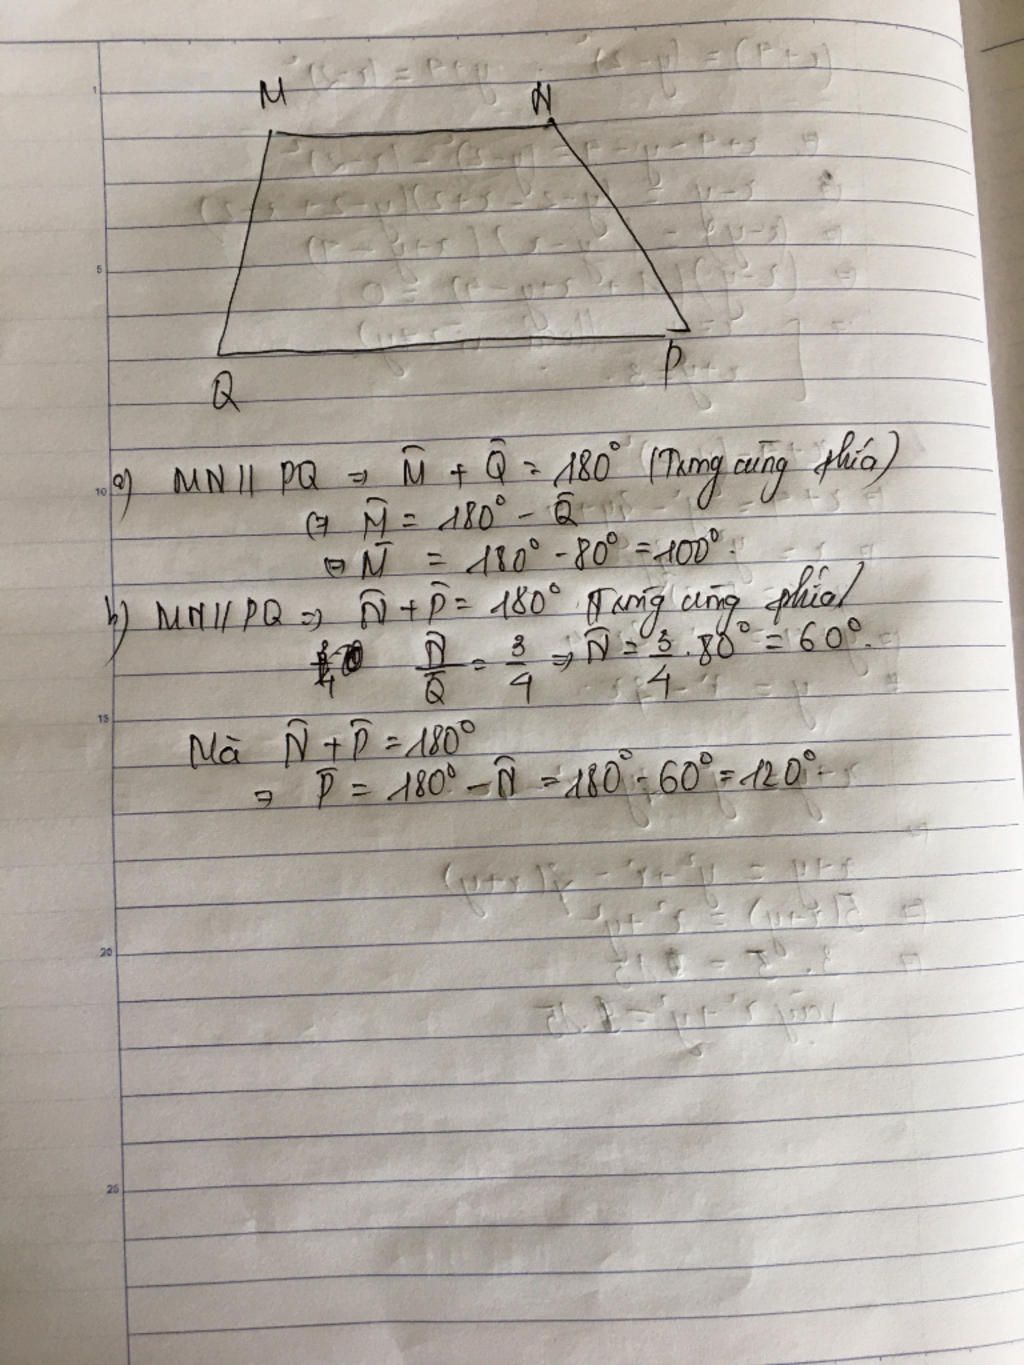 M N
Q P
a) MN // PQ ⇒ M̂ + Q̂ = 180° (Trong cùng phía)
⇔ M̂ = 180° - Q̂
⇔ M̂ = 180° - 80° = 100°.
b) MN // PQ ⇒ N̂ + P̂ = 180° (Trong cùng phía)
N̂/Q̂ = 3/4 ⇒ N̂ = 3/4 . 80° = 60°.
Mà N̂ + P̂ = 180°
⇒ P̂ = 180° - N̂ = 180° - 60° = 120°.
1
5
10
15
20
25